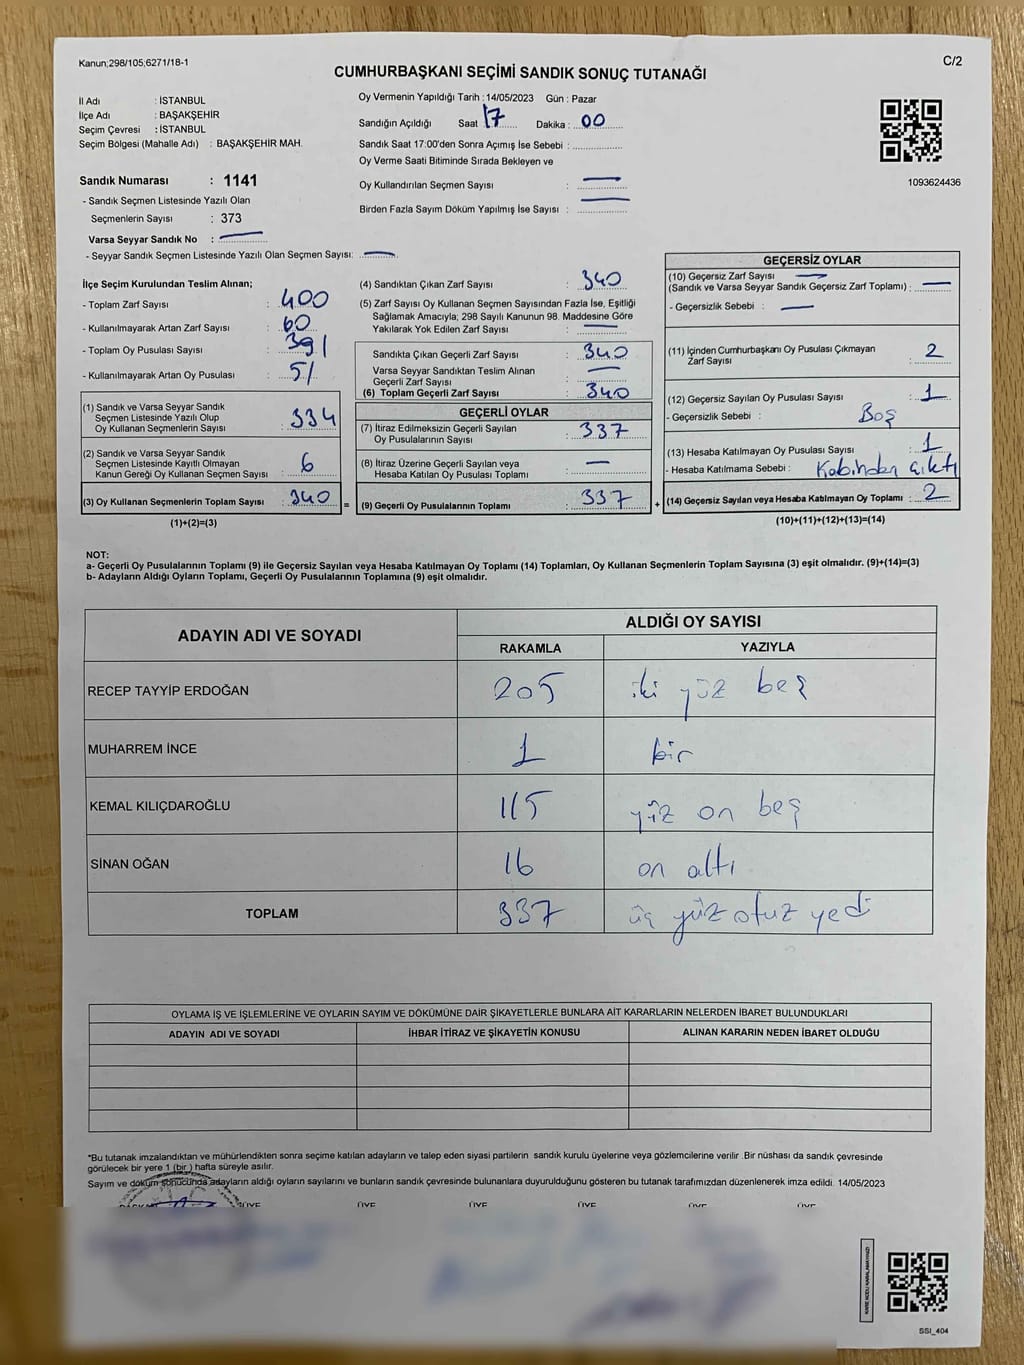 Kanun;298/105;6271/18-1
C/2
CUMHURBAŞKANI SEÇİMİ SANDIK SONUÇ TUTANAĞI
İl Adı : İSTANBUL
İlçe Adı : BAŞAKŞEHİR
Seçim Çevresi : İSTANBUL
Seçim Bölgesi (Mahalle Adı) : BAŞAKŞEHİR MAH.
Sandık Numarası : 1141
- Sandık Seçmen Listesinde Yazılı Olan
Seçmenlerin Sayısı : 373
Varsa Seyyar Sandık No : —
- Seyyar Sandık Seçmen Listesinde Yazılı Olan Seçmen Sayısı: —
Oy Vermenin Yapıldığı Tarih : 14/05/2023 Gün : Pazar
Sandığın Açıldığı Saat 17 Dakika : 00
Sandık Saat 17:00'den Sonra Açımış İse Sebebi :
Oy Verme Saati Bitiminde Sırada Bekleyen ve
Oy Kullandırılan Seçmen Sayısı : —
Birden Fazla Sayım Döküm Yapılmış İse Sayısı : —
1093624436
İlçe Seçim Kurulundan Teslim Alınan;
- Toplam Zarf Sayısı : 400
- Kullanılmayarak Artan Zarf Sayısı : 60
- Toplam Oy Pusulası Sayısı : 391
- Kullanılmayarak Artan Oy Pusulası : 51
(1) Sandık ve Varsa Seyyar Sandık
Seçmen Listesinde Yazılı Olup
Oy Kullanan Seçmenlerin Sayısı : 334
(2) Sandık ve Varsa Seyyar Sandık
Seçmen Listesinde Kayıtlı Olmayan
Kanun Gereği Oy Kullanan Seçmen Sayısı : 6
(3) Oy Kullanan Seçmenlerin Toplam Sayısı : 340 =
(1)+(2)=(3)
(4) Sandıktan Çıkan Zarf Sayısı : 340
(5) Zarf Sayısı Oy Kullanan Seçmen Sayısından Fazla İse, Eşitliği
Sağlamak Amacıyla; 298 Sayılı Kanunun 98. Maddesine Göre
Yakılarak Yok Edilen Zarf Sayısı : —
Sandıkta Çıkan Geçerli Zarf Sayısı : 340
Varsa Seyyar Sandıktan Teslim Alınan
Geçerli Zarf Sayısı : —
(6) Toplam Geçerli Zarf Sayısı : 340
GEÇERLİ OYLAR
(7) İtiraz Edilmeksizin Geçerli Sayılan
Oy Pusulalarının Sayısı : 337
(8) İtiraz Üzerine Geçerli Sayılan veya
Hesaba Katılan Oy Pusulası Toplamı : —
(9) Geçerli Oy Pusulalarının Toplamı : 337 +
GEÇERSİZ OYLAR
(10) Geçersiz Zarf Sayısı —
(Sandık ve Varsa Seyyar Sandık Geçersiz Zarf Toplamı) : —
- Geçersizlik Sebebi : —
(11) İçinden Cumhurbaşkanı Oy Pusulası Çıkmayan
Zarf Sayısı : 2
(12) Geçersiz Sayılan Oy Pusulası Sayısı : 1
- Geçersizlik Sebebi : Boş
(13) Hesaba Katılmayan Oy Pusulası Sayısı : 1
- Hesaba Katılmama Sebebi : Kabinden çıktı
(14) Geçersiz Sayılan veya Hesaba Katılmayan Oy Toplamı : 2
(10)+(11)+(12)+(13)=(14)
NOT:
a- Geçerli Oy Pusulalarının Toplamı (9) ile Geçersiz Sayılan veya Hesaba Katılmayan Oy Toplamı (14) Toplamları, Oy Kullanan Seçmenlerin Toplam Sayısına (3) eşit olmalıdır. (9)+(14)=(3)
b- Adayların Aldığı Oyların Toplamı, Geçerli Oy Pusulalarının Toplamına (9) eşit olmalıdır.
ADAYIN ADI VE SOYADI ALDIĞI OY SAYISI
RAKAMLA YAZIYLA
RECEP TAYYİP ERDOĞAN 205 iki yüz beş
MUHARREM İNCE 1 bir
KEMAL KILIÇDAROĞLU 115 yüz on beş
SİNAN OĞAN 16 on altı
TOPLAM 337 üç yüz otuz yedi
OYLAMA İŞ VE İŞLEMLERİNE VE OYLARIN SAYIM VE DÖKÜMÜNE DAİR ŞİKAYETLERLE BUNLARA AİT KARARLARIN NELERDEN İBARET BULUNDUKLARI
ADAYIN ADI VE SOYADI İHBAR İTİRAZ VE ŞİKAYETİN KONUSU ALINAN KARARIN NEDEN İBARET OLDUĞU
*Bu tutanak imzalandıktan ve mühürlendikten sonra seçime katılan adayların ve talep eden siyasi partilerin sandık kurulu üyelerine veya gözlemcilerine verilir .Bir nüshası da sandık çevresinde
görülecek bir yere 1 (bir ) hafta süreyle asılır.
Sayım ve döküm sonucunda adayların aldığı oyların sayılarını ve bunların sandık çevresinde bulunanlara duyurulduğunu gösteren bu tutanak tarafımızdan düzenlenerek imza edildi. 14/05/2023
ÜYE ÜYE ÜYE ÜYE ÜYE ÜYE
SSI_404